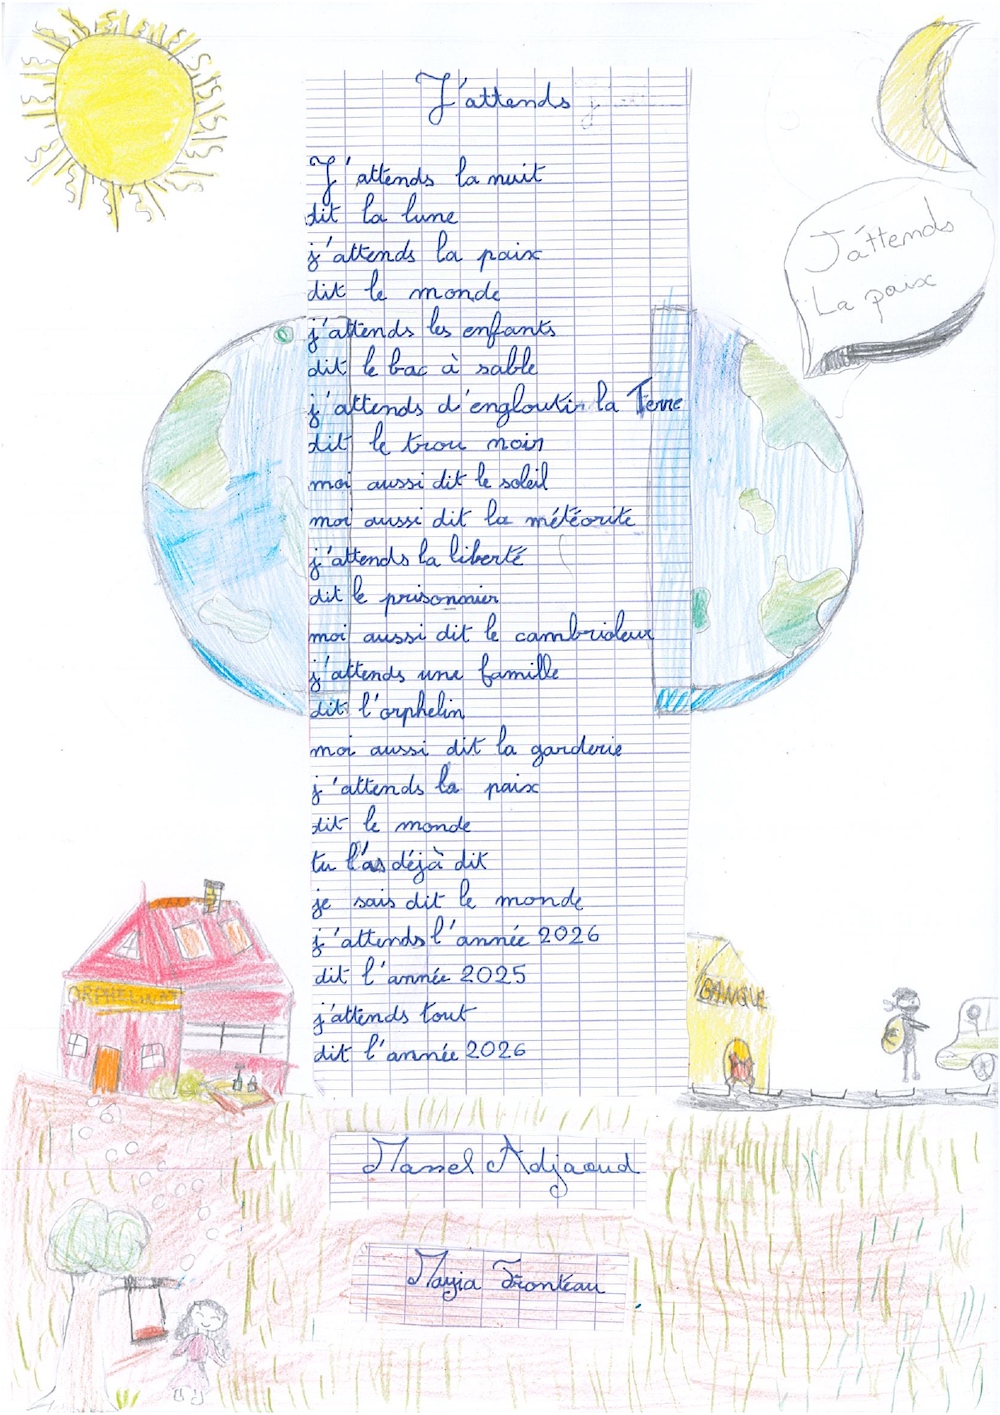 J'attends
J'attends la nuit
dit la lune
j'attends la paix
dit le monde
j'attends les enfants
dit le bac à sable
j'attends d'engloutir la Terre
dit le trou noir
moi aussi dit le soleil
moi aussi dit la météorite
j'attends la liberté
dit le prisonnier
moi aussi dit le cambrioleur
j'attends une famille
dit l'orphelin
moi aussi dit la garderie
j'attends la paix
dit le monde
tu l'as déjà dit
je sais dit le monde
j'attends l'année 2026
dit l'année 2025
j'attends tout
dit l'année 2026
J'attends
La paix
ORPHELINAT
BANQUE
Manel Adjaoud
Mayia Fronteau